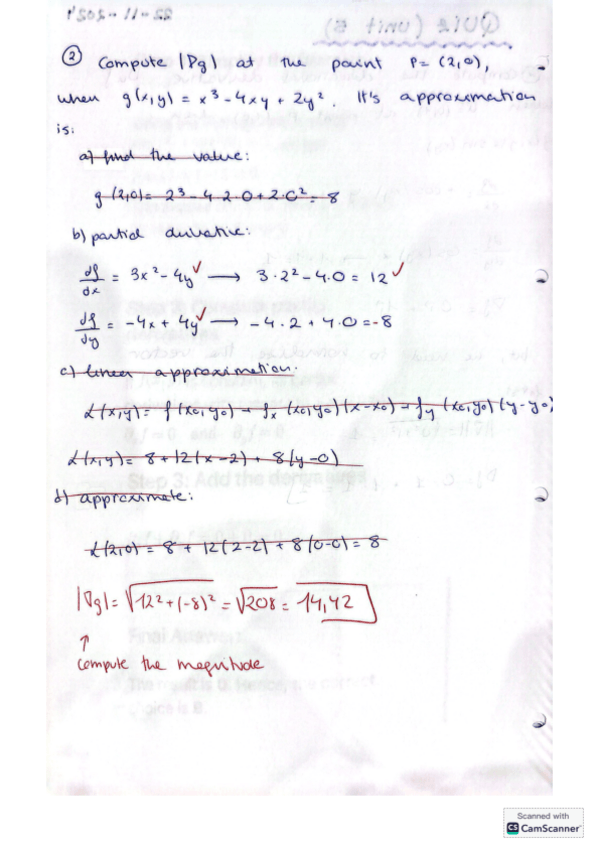 ② Compute |∇g| at the point P= (2,0),
when g(x,y) = x³-4xy + 2y². It's approximation
is:
a) find the value:
g(2,0)= 2³-4·2·0+2·0²=8
b) partial derivative:
df/dx = 3x²-4y ✓ → 3·2²-4·0= 12 ✓
df/dy = -4x+4y ✓ → -4·2+4·0=-8
c) linear approximation:
L(x,y)= f(x0,y0)+fx(x0,y0)(x-x0)+fy(x0,y0)(y-y0)
L(x,y)= 8+12(x-2)+8(y-0)
d) approximate:
L(2,0)=8+12(2-2)+8(0-0)=8
|∇g|= √12²+(-8)² = √208 = 14,42
↑
compute the magnitude
Scanned with
CS CamScanner